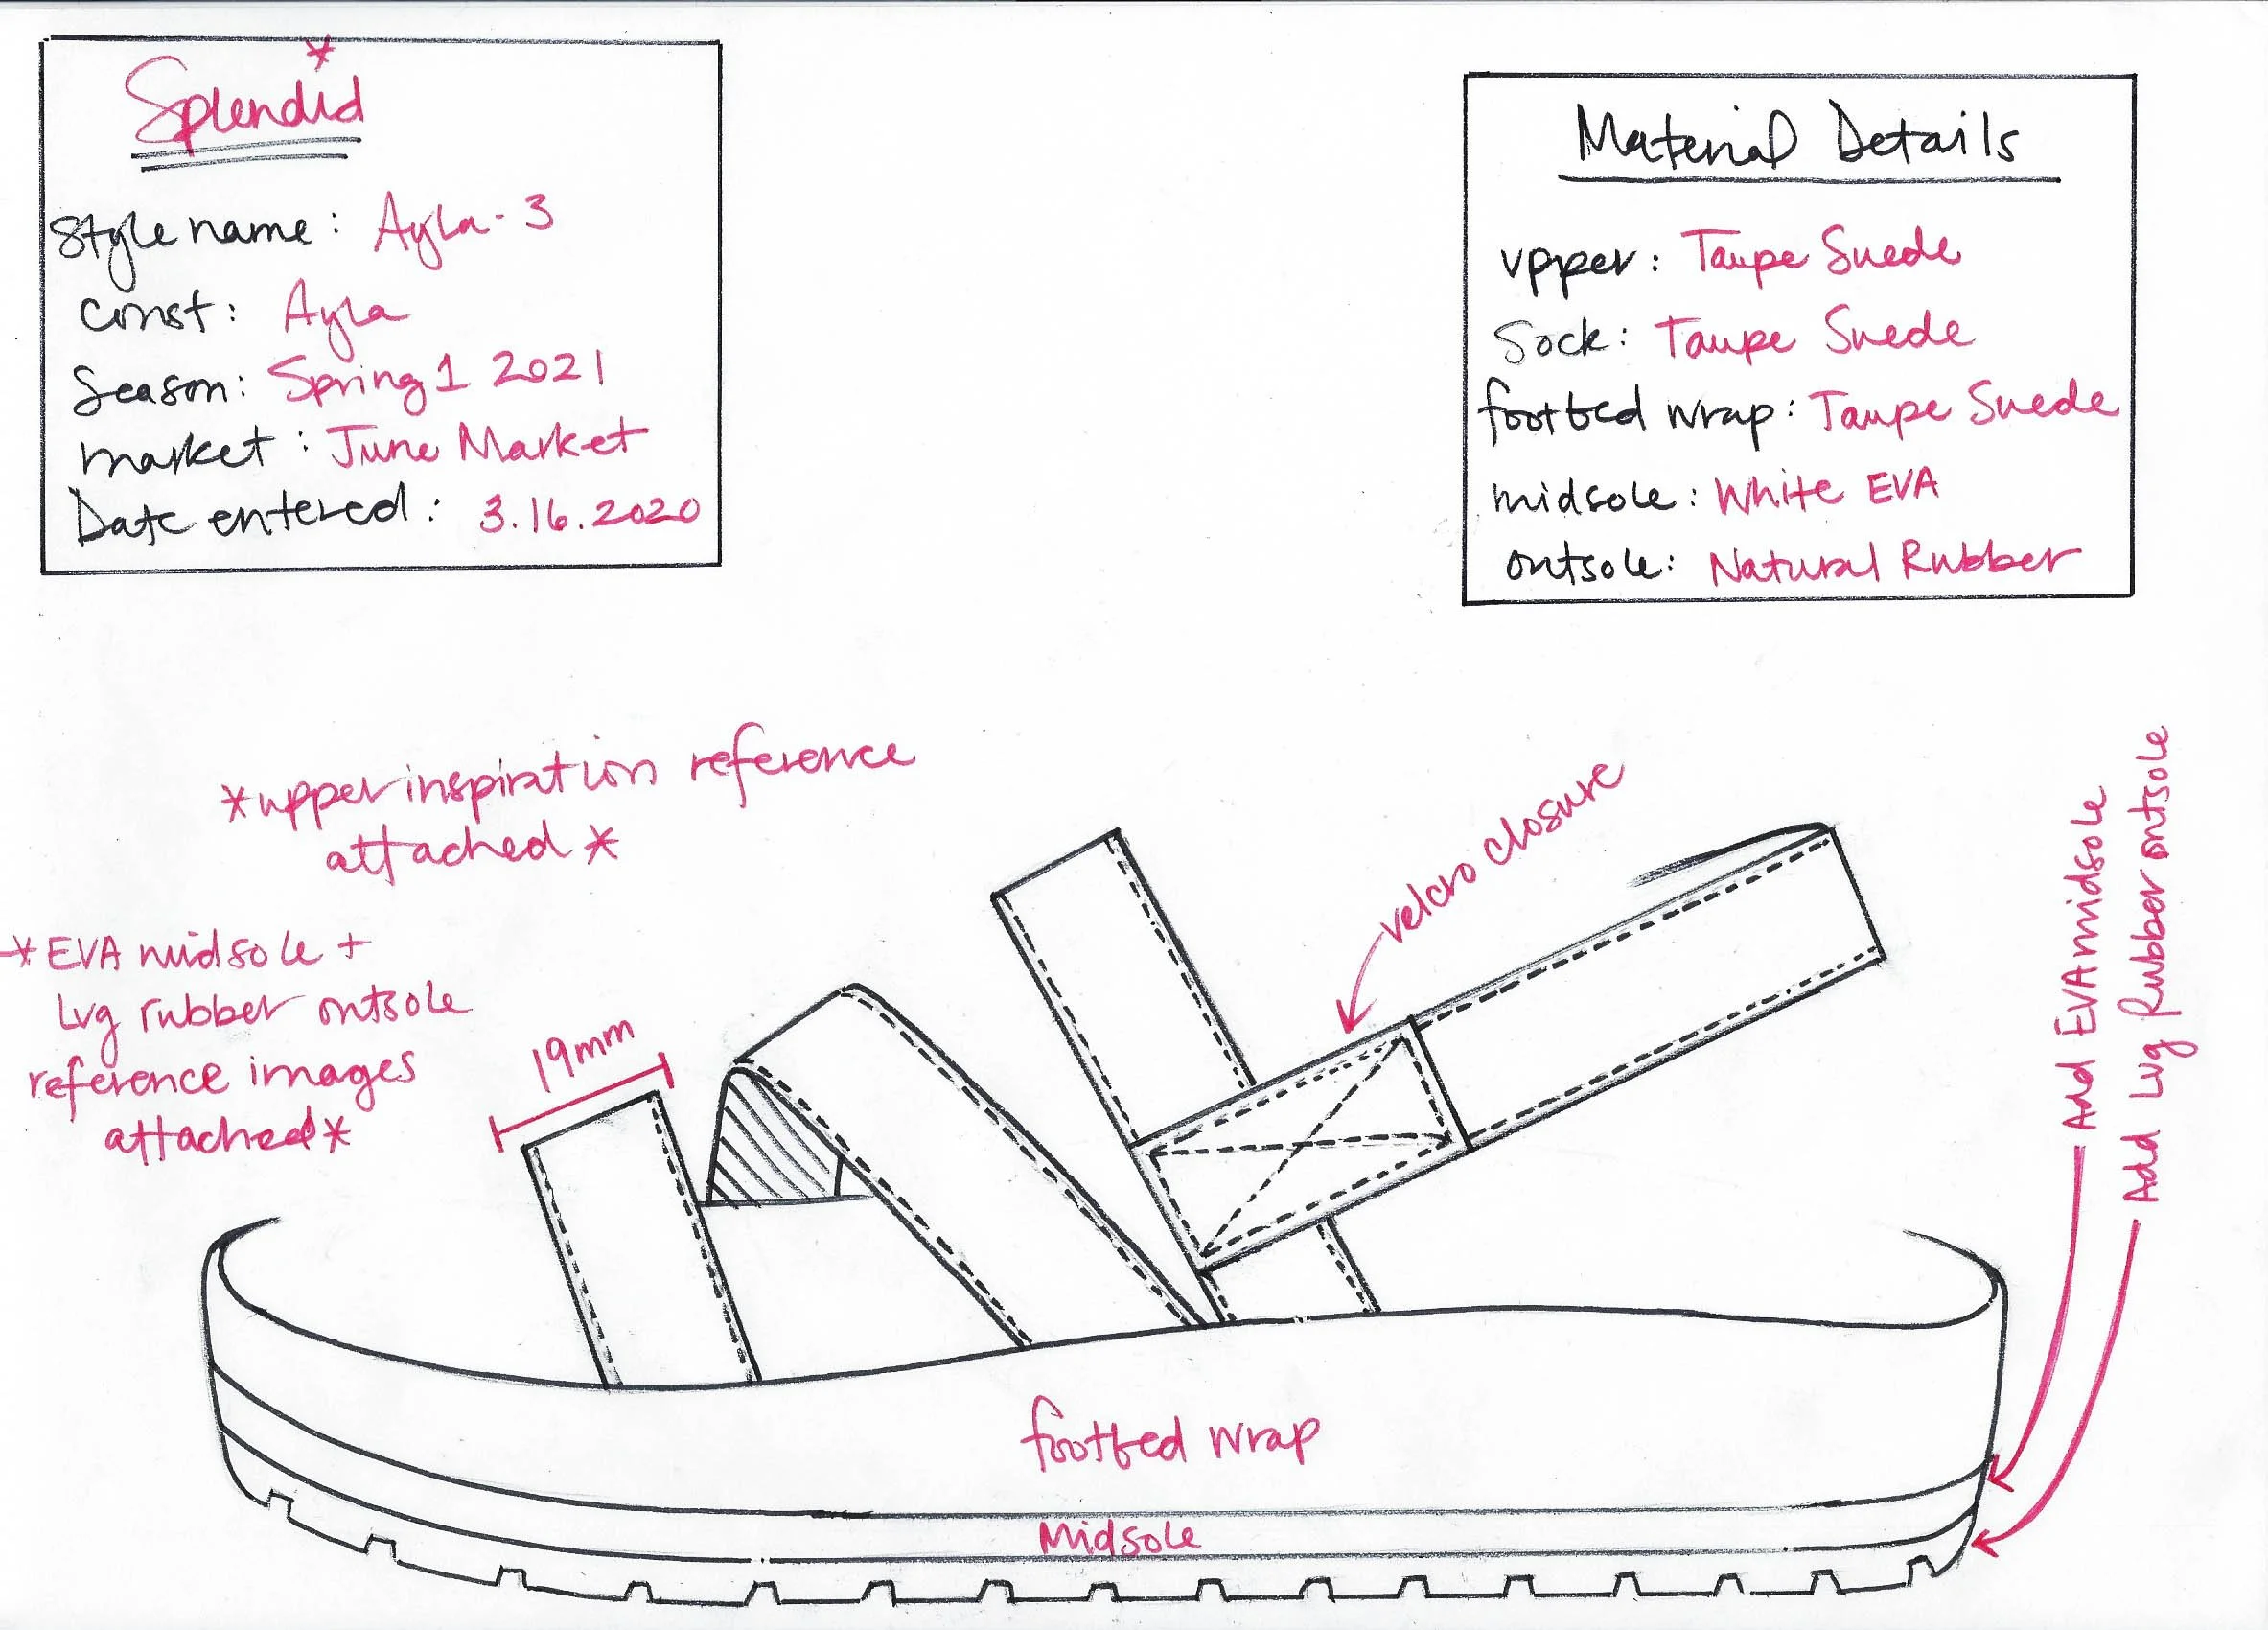 Splendid
Style name: Ayla-3
Const: Ayla
Season: Spring 1 2021
market: June Market
Date entered: 3.16.2020
Material Details
upper: Taupe Suede
Sock: Taupe Suede
footbed wrap: Taupe Suede
midsole: White EVA
outsole: Natural Rubber
*upper inspiration reference
attached*
*EVA midsole +
Lug rubber outsole
reference images
attached*
19mm
velcro closure
Add EVA midsole
Add Lug Rubber outsole
footbed wrap
Midsole